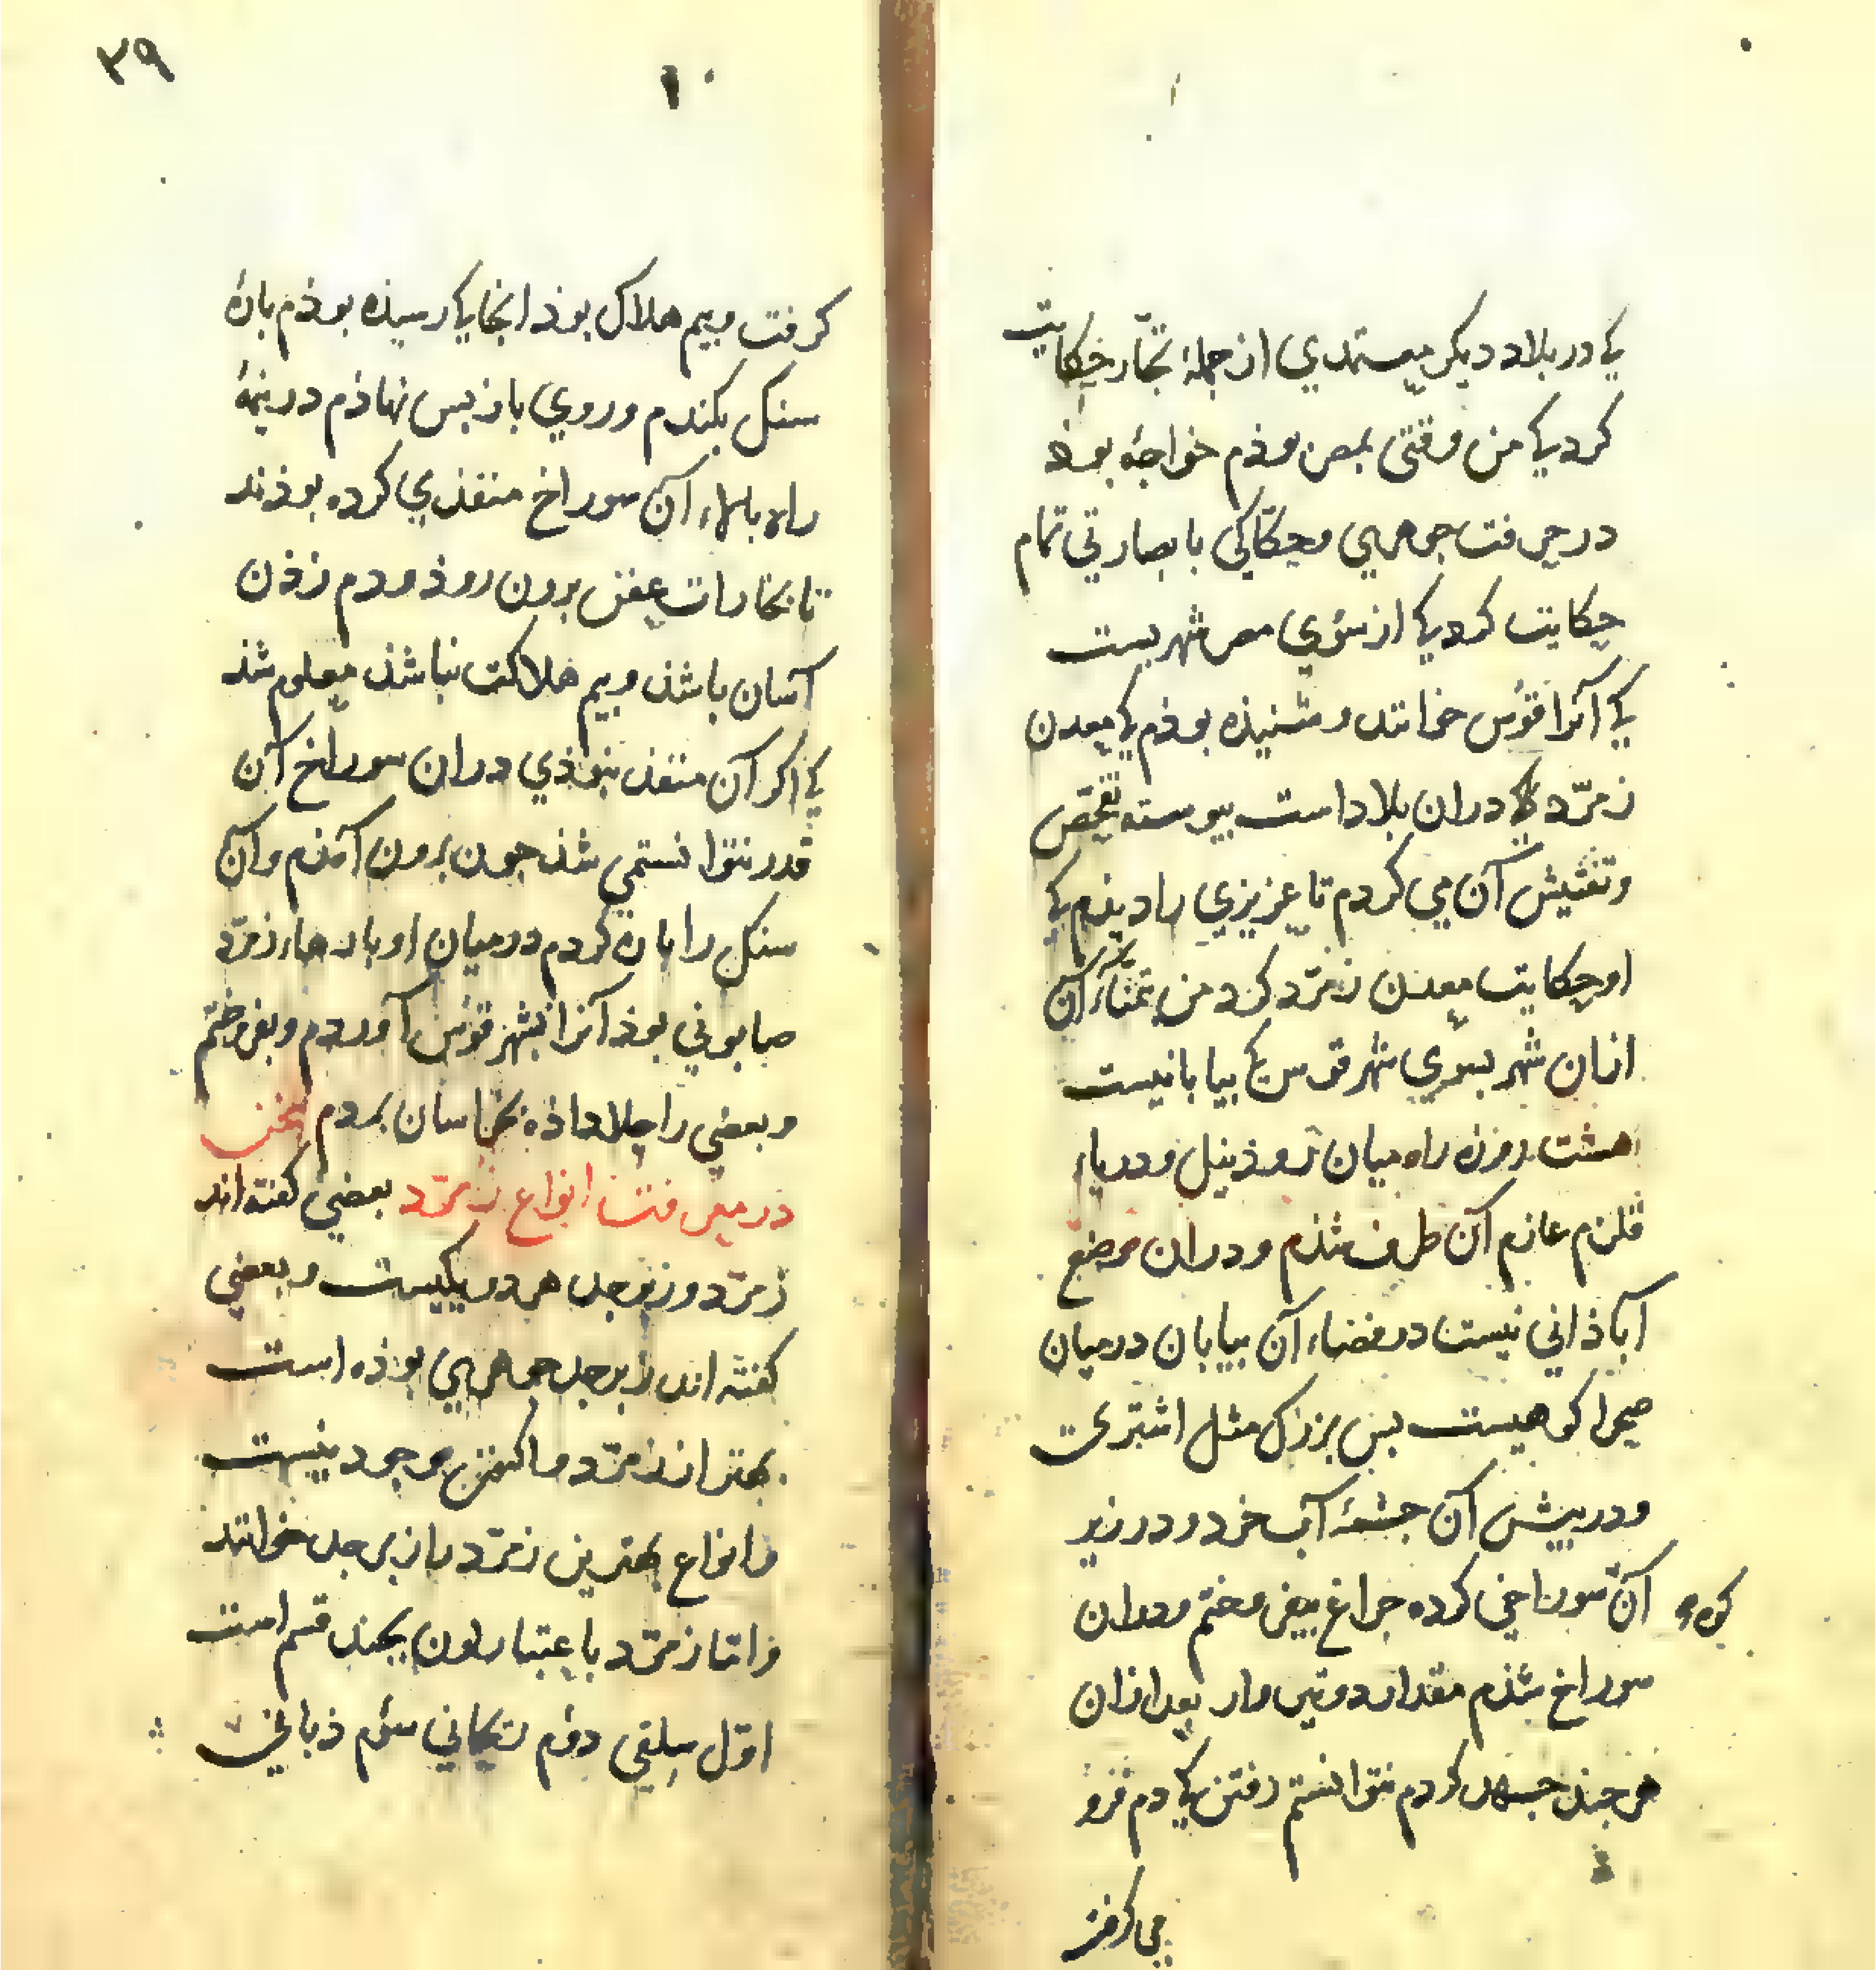 کی در بلاد دیکر معتمدي از جملهٔ تجّار حکایت
کرد کی من وقتی بمصر بوذم خواجهٔ بوذ
در حرفت جوهري وحکّاکی با بصارتي تمام
حکایت کرد کی از سوي مصر شهریست
کی آنرا قوس خوانند و شنیذه بوذم کی معدن
زمرّد کی دران بلاد است بیوسته تفحّص
وتفتیش آن مي کردم تا عزیزي را دیذم کی
او حکایت معدن زمرّد کرد من بتمنّاء آن
ازان شهر بسوي شهر قوس کی بیابانیست
هشت روزه راه میان روذ نیل ودریاء
قلزم عازم آن طرف شذم ودران موضع
آباذاني نیست در فضاء آن بیابان درمیان
صحرا کوهیست بس بزرک مثل اشتري
ودر بیش آن جشمهٔ آب خرد ودر زیر
آن کوه سوراخي کرده جراغ بیفروختم ودران
سوراخ شذم مقدار دو تیروار بعد ازان
هر جند جهد کردم نتوانستم رفتن کی دم فرو
می کرفت
۳۹
۱۰
کرفت وبیم هلاک بوذ انجایکا رسیذه بوذم بارهٔ
سنک بکندم وروي باز بس نهاذم در نیمهٔ
راه بالاء آن سوراخ منفذي کرده بوذند
تا بخارات عفن برون روذ ودم زذن
آسان باشذ وبیم هلاکت نباشذ معلوم شذ
کی اکر آن منفذ نبوذي دران سوراخ آن
قدر نتوانستمي شذ جون برون آمذم وآن
سنک را باره کردم درمیان او بارهاء زمرّد
صابوني بوذ آنرا بشهر قوس آوردم وبفروختم
وبعضي را جلا داذه بخراسان بردم سخن
در معرفت انواع زمرّد بعضي کفته اند
زمرّد وزبرجد هر دو یکیست وبعضي
کفته اند زبرجد جوهري بوذه است
بهتر از زمرّد واکنون موجود نیست
وانواع بهترین زمرّد را زبرجد خوانند
وامّا زمرّد باعتبار لون بجند قسم است
اوّل سلقي دوّم ریحاني سوّم ذبابي